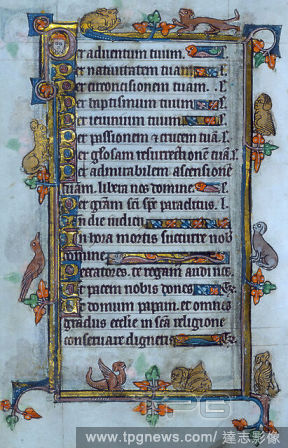 Per adventum tuum.
Per nativitatem tuam. l.
Per circoncisionem tuam. l.
Per baptismum tuum l.
Per ieiunium tuum l.
Per passionem & crucem tuā. l.
Per głosam resurrectionē tuā l.
Per admirabilem ascensionē
tuam. libera nos domine.
Per grām scī spc paraclitus. l.
In die iudicii
In hora mortis succurre nob
domine
Peccatores. te rogam audi nos
Ut pacem nobis dones
Ut domum papam. et omnes
gradus ecclie in scā religione
conservare digneris
TPG
www.tpgnews.com/ 達志影像